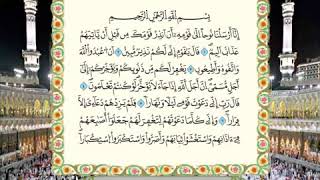 بِسْمِ اللَّهِ الرَّحْمَٰنِ الرَّحِيمِ
إِنَّا أَرْسَلْنَا نُوحًا إِلَىٰ قَوْمِهِ أَنْ أَنذِرْ قَوْمَكَ مِن قَبْلِ أَن يَأْتِيَهُمْ
عَذَابٌ أَلِيمٌ ۝ قَالَ يَا قَوْمِ إِنِّي لَكُمْ نَذِيرٌ مُّبِينٌ ۝ أَنِ اعْبُدُوا اللَّهَ
وَاتَّقُوهُ وَأَطِيعُونِ ۝ يَغْفِرْ لَكُم مِّن ذُنُوبِكُمْ وَيُؤَخِّرْكُمْ إِلَىٰ
أَجَلٍ مُّسَمًّى إِنَّ أَجَلَ اللَّهِ إِذَا جَاءَ لَا يُؤَخَّرُ لَوْ كُنتُمْ تَعْلَمُونَ ۝
قَالَ رَبِّ إِنِّي دَعَوْتُ قَوْمِي لَيْلًا وَنَهَارًا ۝ فَلَمْ يَزِدْهُمْ دُعَائِي إِلَّا
فِرَارًا ۝ وَإِنِّي كُلَّمَا دَعَوْتُهُمْ لِتَغْفِرَ لَهُمْ جَعَلُوا أَصَابِعَهُمْ
فِي آذَانِهِمْ وَاسْتَغْشَوْا ثِيَابَهُمْ وَأَصَرُّوا وَاسْتَكْبَرُوا اسْتِكْبَارًا ۝